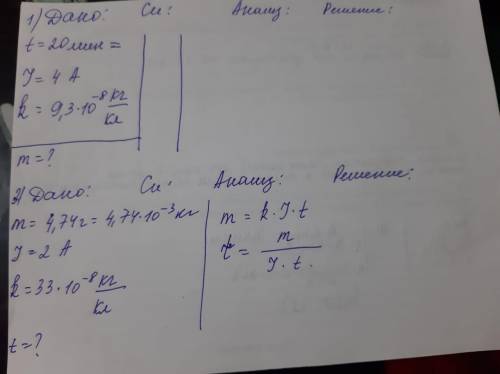 1) Дано: Си: Анализ: Решение:
t = 20 мин =
J = 4 А
k = 9,3·10⁻⁸ кг/кл
m = ?
2) Дано: Си: Анализ: Решение:
m = 4,74 г = 4,74·10⁻³ кг
J = 2 А
k = 33·10⁻⁸ кг/кл
t = ?
m = k·J·t
t = m/J·t.